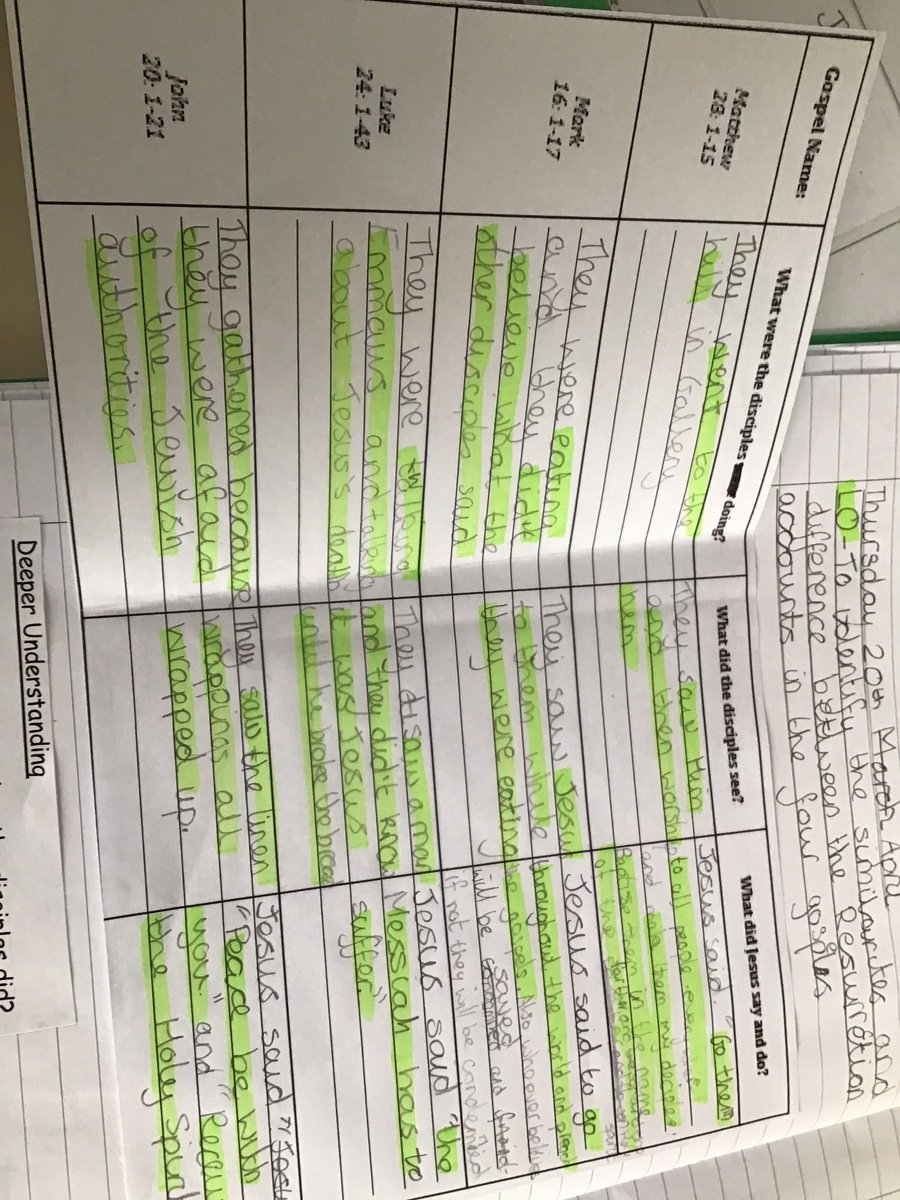 Thursday 20th March April
LO - To identify the similarites and
difference between the Resurection
accounts in the four gosples
Gospel Name:
What were the disciples doing?
What did the disciples see?
What did Jesus say and do?
Matthew
28: 1-15
They went to the
hill in Gallery
They saw Him
and then worship
Him
Jesus said. "Go them
to all people everywhere
and make them my disciples:
in the name
of the
Mark
16: 1-17
They were eating
and they didn't
believe what the
other disciples said
They saw Jesus
to them while
they were eating
Jesus said to go
throughout the world and preach
the gospels. Also who ever belives
will be saved and
if not they will be condemned
Luke
24: 1-43
They were talking
Emmaus and talking
about Jesus's death
They saw a man
and they did't know
it was Jesus
until he broke the bread
Jesus said "the
Messiah has to
suffer"
John
20: 1-21
They gathered because
they were afraid
of the Jewish
authorities.
They saw the linen
wrappings all
wrapped up.
Jesus said
"Peace be with
you" and "Reciev
the Holy Spirit
Deeper Understanding
disciples did?